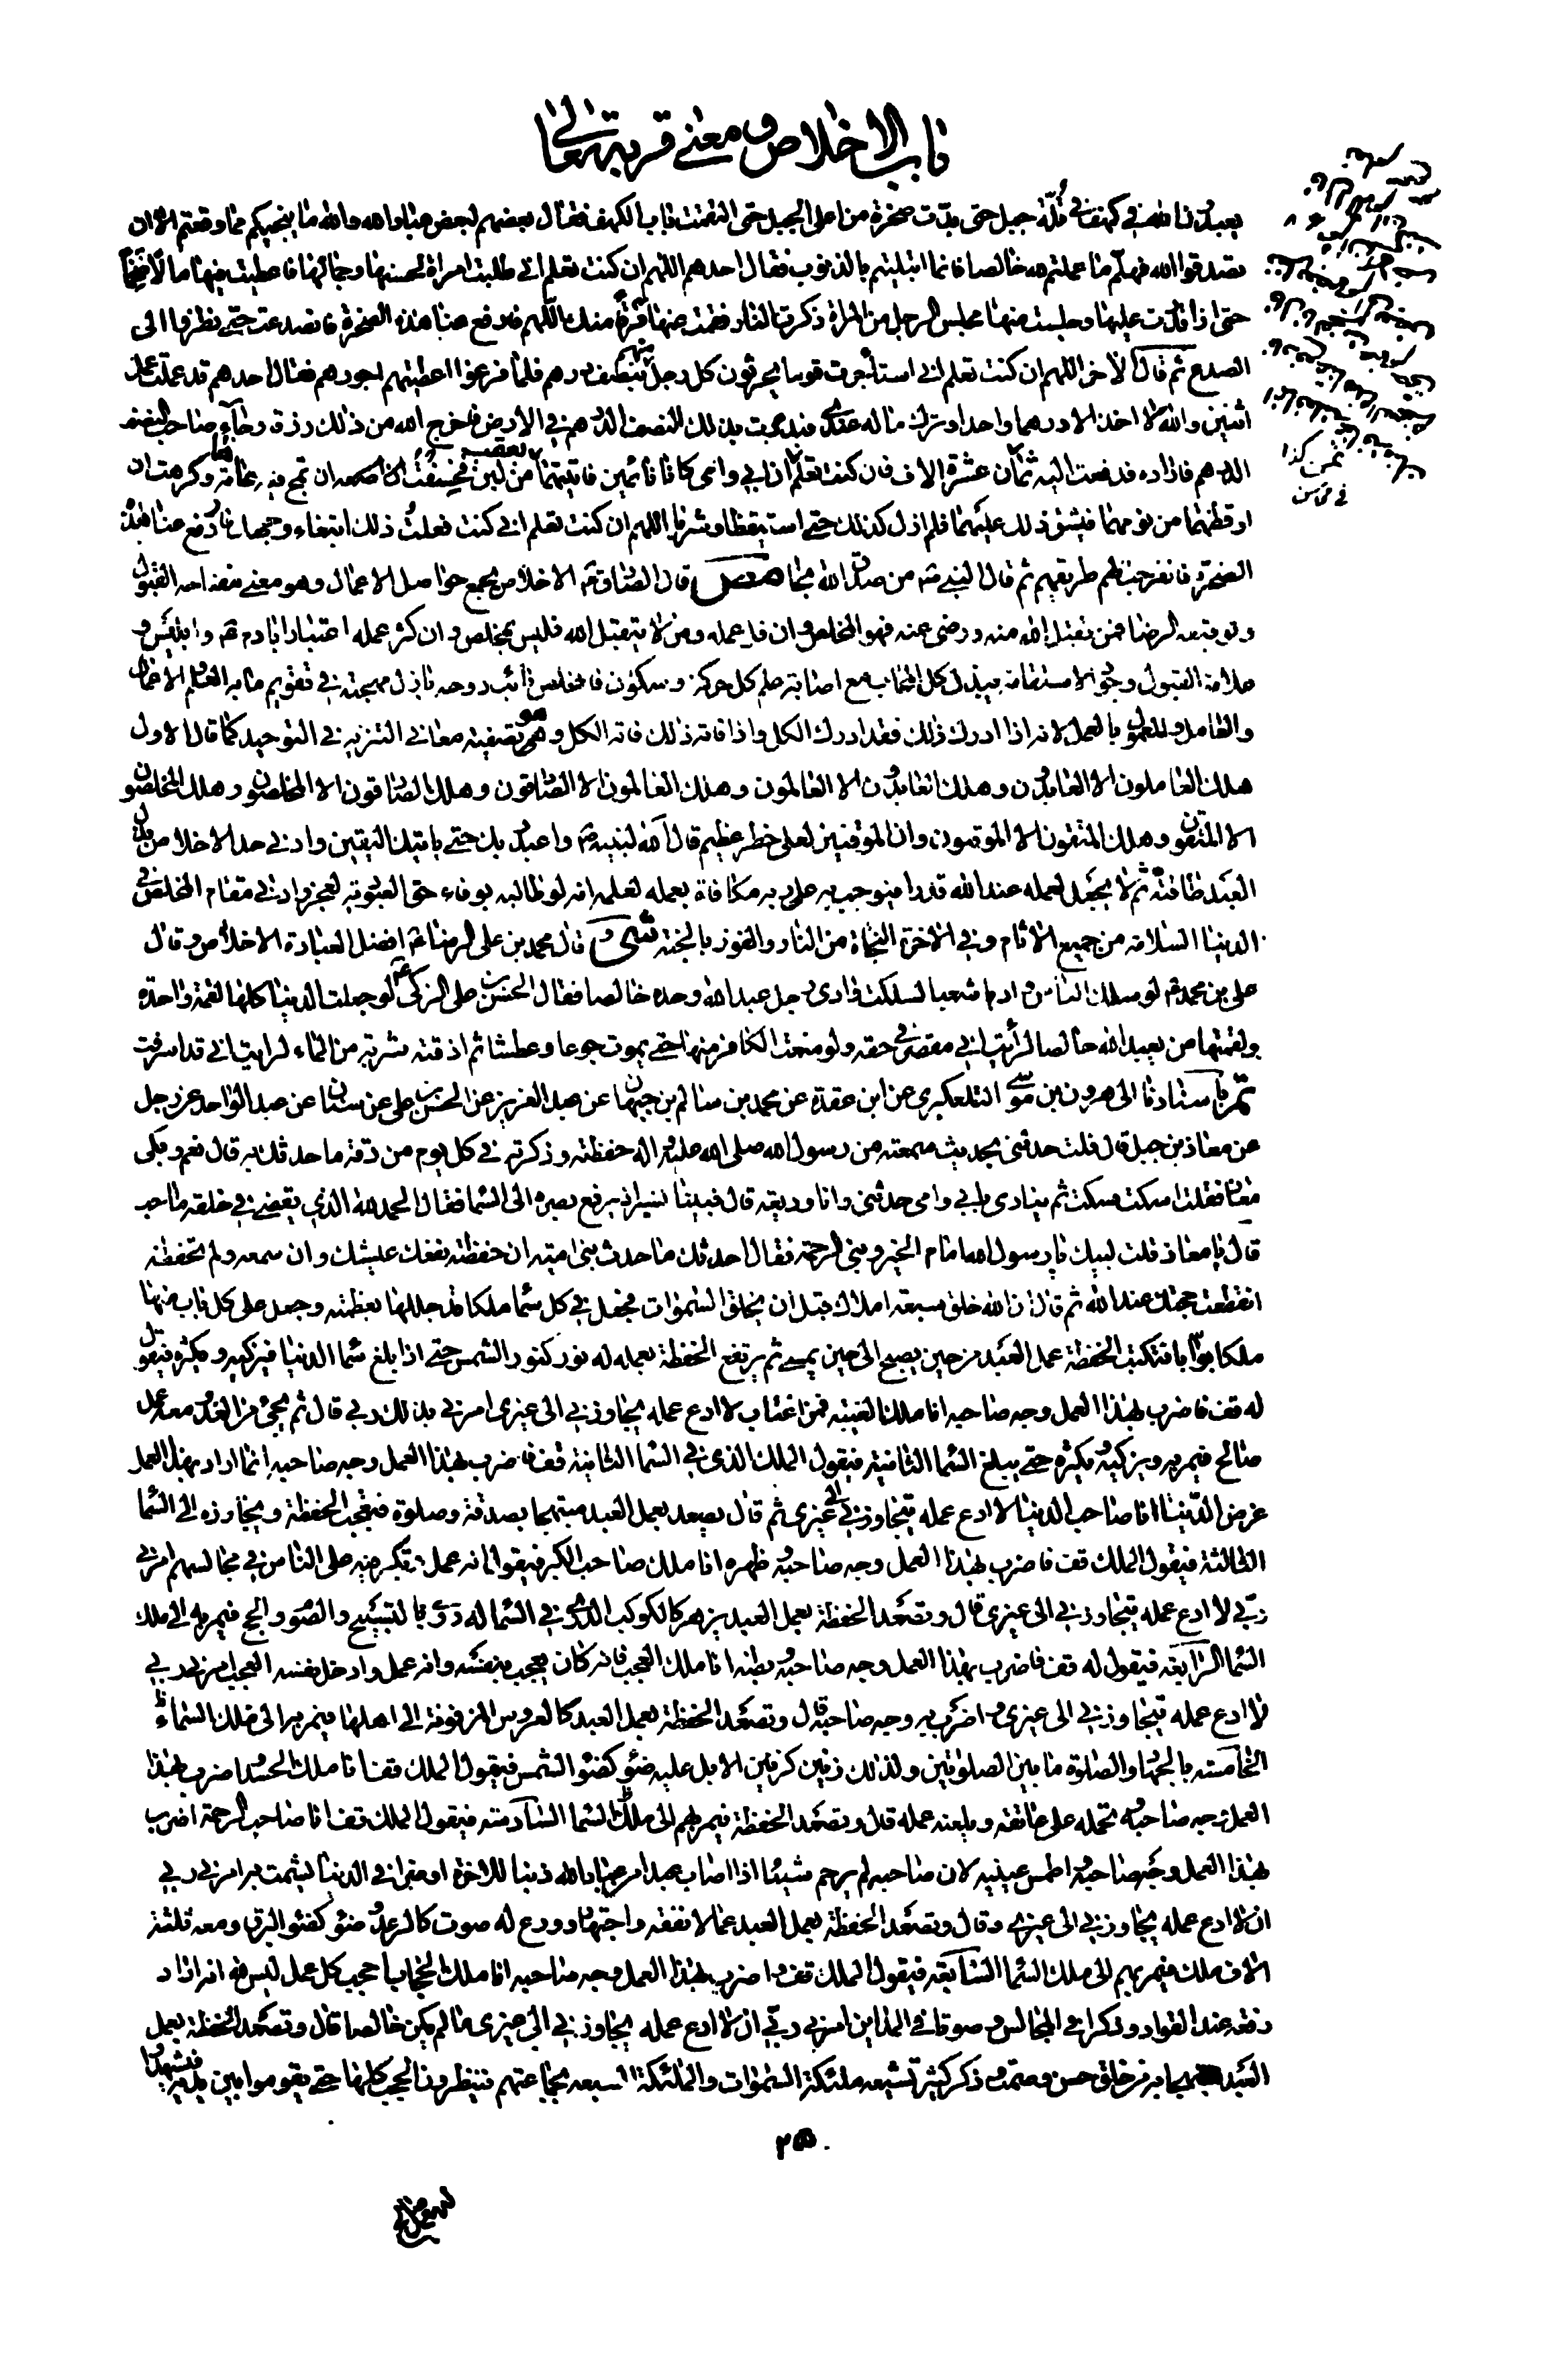 باب الاخلاص ومعنى قربته تعالى
يعبدون الله في كهف في قلة جبل حتى بدت صخرة من اعلى الجبل حتى التقمت باب الكهف فقال بعضهم لبعض عباد الله والله ما ينجيكم مما وقعتم الا ان
تصدقوا الله فهلم ما عملتم لله خالصا فانما ابتليتم بالذنوب فقال احدهم اللهم ان كنت تعلم اني طلبت امراة لحسنها وجمالها فاعطيت فيها مالا ضخما
حتى اذا قدرت عليها وجلست منها مجلس الرجل من المراة ذكرت النار فقمت عنها فرقا منك اللهم فارفع عنا هذه الصخرة فانصدعت حتى نظروا الى
الصدع ثم قال الاخر اللهم ان كنت تعلم اني استاجرت قوما يحرثون كل رجل منهم بنصف درهم فلما فرغوا اعطيتهم اجورهم فقال احدهم قد عملت عمل
اثنين والله لا اخذ الا درهما واحدا وترك ماله عندي فبذرت بذلك النصف الدرهم في الارض فاخرج الله من ذلك رزقا وجاء صاحب النصف
الدرهم فاراده فدفعت اليه ثمان عشرة الاف فان كنت تعلم ان ابي وامي كانا نائمين فاتيتهما بقعب من لبن فخفت ان اضعه ان تمج فيه هامة وكرهت ان
اوقظهما من نومهما فيشق ذلك عليهما فلم ازل كذلك حتى استيقظا وشربا اللهم ان كنت تعلم اني كنت فعلت ذلك ابتغاء وجهك فارفع عنا هذه
الصخرة فانفرجت لهم طريقهم ثم قال النبي ص من صدق الله نجا مص قال الصادق ع الاخلاص يجمع حواصل الاعمال وهو معنى مفتاحه القبول
وتوقيعه الرضا فمن تقبل الله منه ورضي عنه فهو المخلص وان قل عمله ومن لا يتقبل الله فليس بمخلص وان كثر عمله اعتبارا بادم ع وابليس و
علامة القبول وجود الاستقامة ببذل كل المحاب مع اصابة علم كل حركة وسكون فالمخلص ذائب روحه باذل مهجته في تقويم ما به العلم والاعمال
والعامل والمعمول بالعمل لانه اذا ادرك ذلك فقد ادرك الكل واذا فاته ذلك فاته الكل وهو تصفية معاني التنزيه في التوحيد كما قال الاول
هلك العاملون الا العابدون وهلك العابدون الا العالمون وهلك العالمون الا الصادقون وهلك الصادقون الا المخلصون وهلك المخلصون
الا المتقون وهلك المتقون الا الموقنون وان الموقنين لعلى خطر عظيم قال الله لنبيه ص واعبد ربك حتى ياتيك اليقين وادنى حد الاخلاص بذل
العبد طاقته ثم لا يجعل لعمله عند الله قدرا فيوجب به على ربه مكافاة بعمله لعلمه انه لو طالبه بوفاء حق العبودية لعجز وادنى مقام المخلص في
الدنيا السلامة من جميع الاثام وفي الاخرة النجاة من النار والفوز بالجنة شى و قال محمد بن علي الرضا ع افضل العبادة الاخلاص وقال
علي بن محمد ع لو سلك الناس واديا شعبا لسلكت وادي رجل عبد الله وحده خالصا فقال الحسن بن علي الزكي ع لو جعلت الدنيا كلها لقمة واحدة
ولقمتها من يعبد الله خالصا لرايت اني مقصر في حقه ولو منعت الكافر منها حتى يموت جوعا وعطشا ثم اذقته شربة من الماء لرايت اني قد اسرفت
باسنادنا الى هرون بن موسى التلعكبري عن ابن عقدة عن محمد بن سالم بن جبهان عن عبد العزيز عن الحسن بن علي عن سنان عن عبد الواحد عن رجل
عن معاذ بن جبل قال قلت حدثني بحديث سمعته من رسول الله صلى الله عليه واله حفظته وذكرته في كل يوم من دقة ما حدثك به قال نعم وبكى
معاذ فقلت اسكت فسكت ثم ينادي بابي وامي حدثني وانا رديفه قال فبينا نسير اذ رفع بصره الى السما فقال الحمد لله الذي يقضي في خلقه ما احب
قال يا معاذ قلت لبيك يا رسول الله امام الخير ونبي الرحمة فقال احدثك ما حدث نبي امته ان حفظته نفعك عيشك وان سمعته ولم تحفظه
انقطعت حجتك عند الله ثم قال ان الله خلق سبعة املاك قبل ان يخلق السموات فجعل في كل سما ملكا قد جللها بعظمته وجعل على كل باب منها
ملكا بوابا فتكتب الحفظة عمل العبد من حين يصبح الى حين يمسي ثم يرتفع الحفظة بعمله له نور كنور الشمس حتى اذا بلغ سما الدنيا فيزكيه ويكثره فيقول
له قف فاضرب بهذا العمل وجه صاحبه انا ملك الغيبة فمن اغتاب لا ادع عمله يجاوزني الى غيري امرني بذلك ربي قال ثم يجئ من الغد ومعه عمل
صالح فيمر به ويزكيه ويكثره حتى يبلغ السما الثانية فيقول الملك الذي في السما الثانية قف فاضرب بهذا العمل وجه صاحبه انما اراد بهذا العمل
عرض الدنيا انا صاحب الدنيا لا ادع عمله يتجاوزني الى غيري ثم قال يصعد بعمل العبد مبتهجا بصدقة وصلوة فتعجب الحفظة ويجاوزه الى السما
الثالثة فيقول الملك قف فاضرب بهذا العمل وجه صاحبه وظهره انا ملك صاحب الكبر فيقول انه عمل وتكبر فيه على الناس في مجالسهم امرني
ربي لا ادع عمله يتجاوزني الى غيري قال وتصعد الحفظة بعمل العبد يزهر كالكوكب الدري في السما له دوي بالتسبيح والصوم والحج فيمر به الى ملك
السما الرابعة فيقول له قف فاضرب بهذا العمل وجه صاحبه وبطنه انا ملك العجب فانه كان يعجب بنفسه وانه عمل وادخل نفسه العجب امرني ربي
لا ادع عمله يتجاوزني الى غيري واضرب به وجه صاحبه قال وتصعد الحفظة بعمل العبد كالعروس المزفوفة الى اهلها فيمر به الى ملك السماء
الخامسة بالجهاد والصلوة ما بين الصلوتين ولذلك رنين كرنين الابل عليه ضوء كضوء الشمس فيقول الملك قف انا ملك الحسد اضرب بهذا
العمل وجه صاحبه وتحمله على عاتقه ويلعنه عمله قال وتصعد الحفظة فيمر بهم الى ملك السما السادسة فيقول الملك قف انا صاحب الرحمة اضرب
بهذا العمل وجه صاحبه واطمس عينيه لان صاحبه لم يرحم شيئا اذا اصاب عبدا من عباد الله ذنبا للاخرة او ضرا في الدنيا يشمت به امرني ربي
ان لا ادع عمله يجاوزني الى غيري وقال وتصعد الحفظة بعمل العبد عملا بفقه واجتهاد وورع له صوت كالرعد وضوء كضوء البرق ومعه ثلثة
الاف ملك فيمر بهم الى ملك السما السابعة فيقول الملك قف واضرب بهذا العمل وجه صاحبه انا ملك الحجاب احجب كل عمل ليس لله انه اراد
رفعة عند القواد وذكرا في المجالس وصوتا في المداين امرني ربي ان لا ادع عمله يجاوزني الى غيري ما لم يكن خالصا قال وتصعد الحفظة بعمل
العبد مبتهجا به من خلق حسن وصمت وذكر كثير تشيعه ملئكة السموات والملئكة السبعة بجماعتهم فينظرون الحجب كلها حتى يقوموا بين يديه فيشهدوا